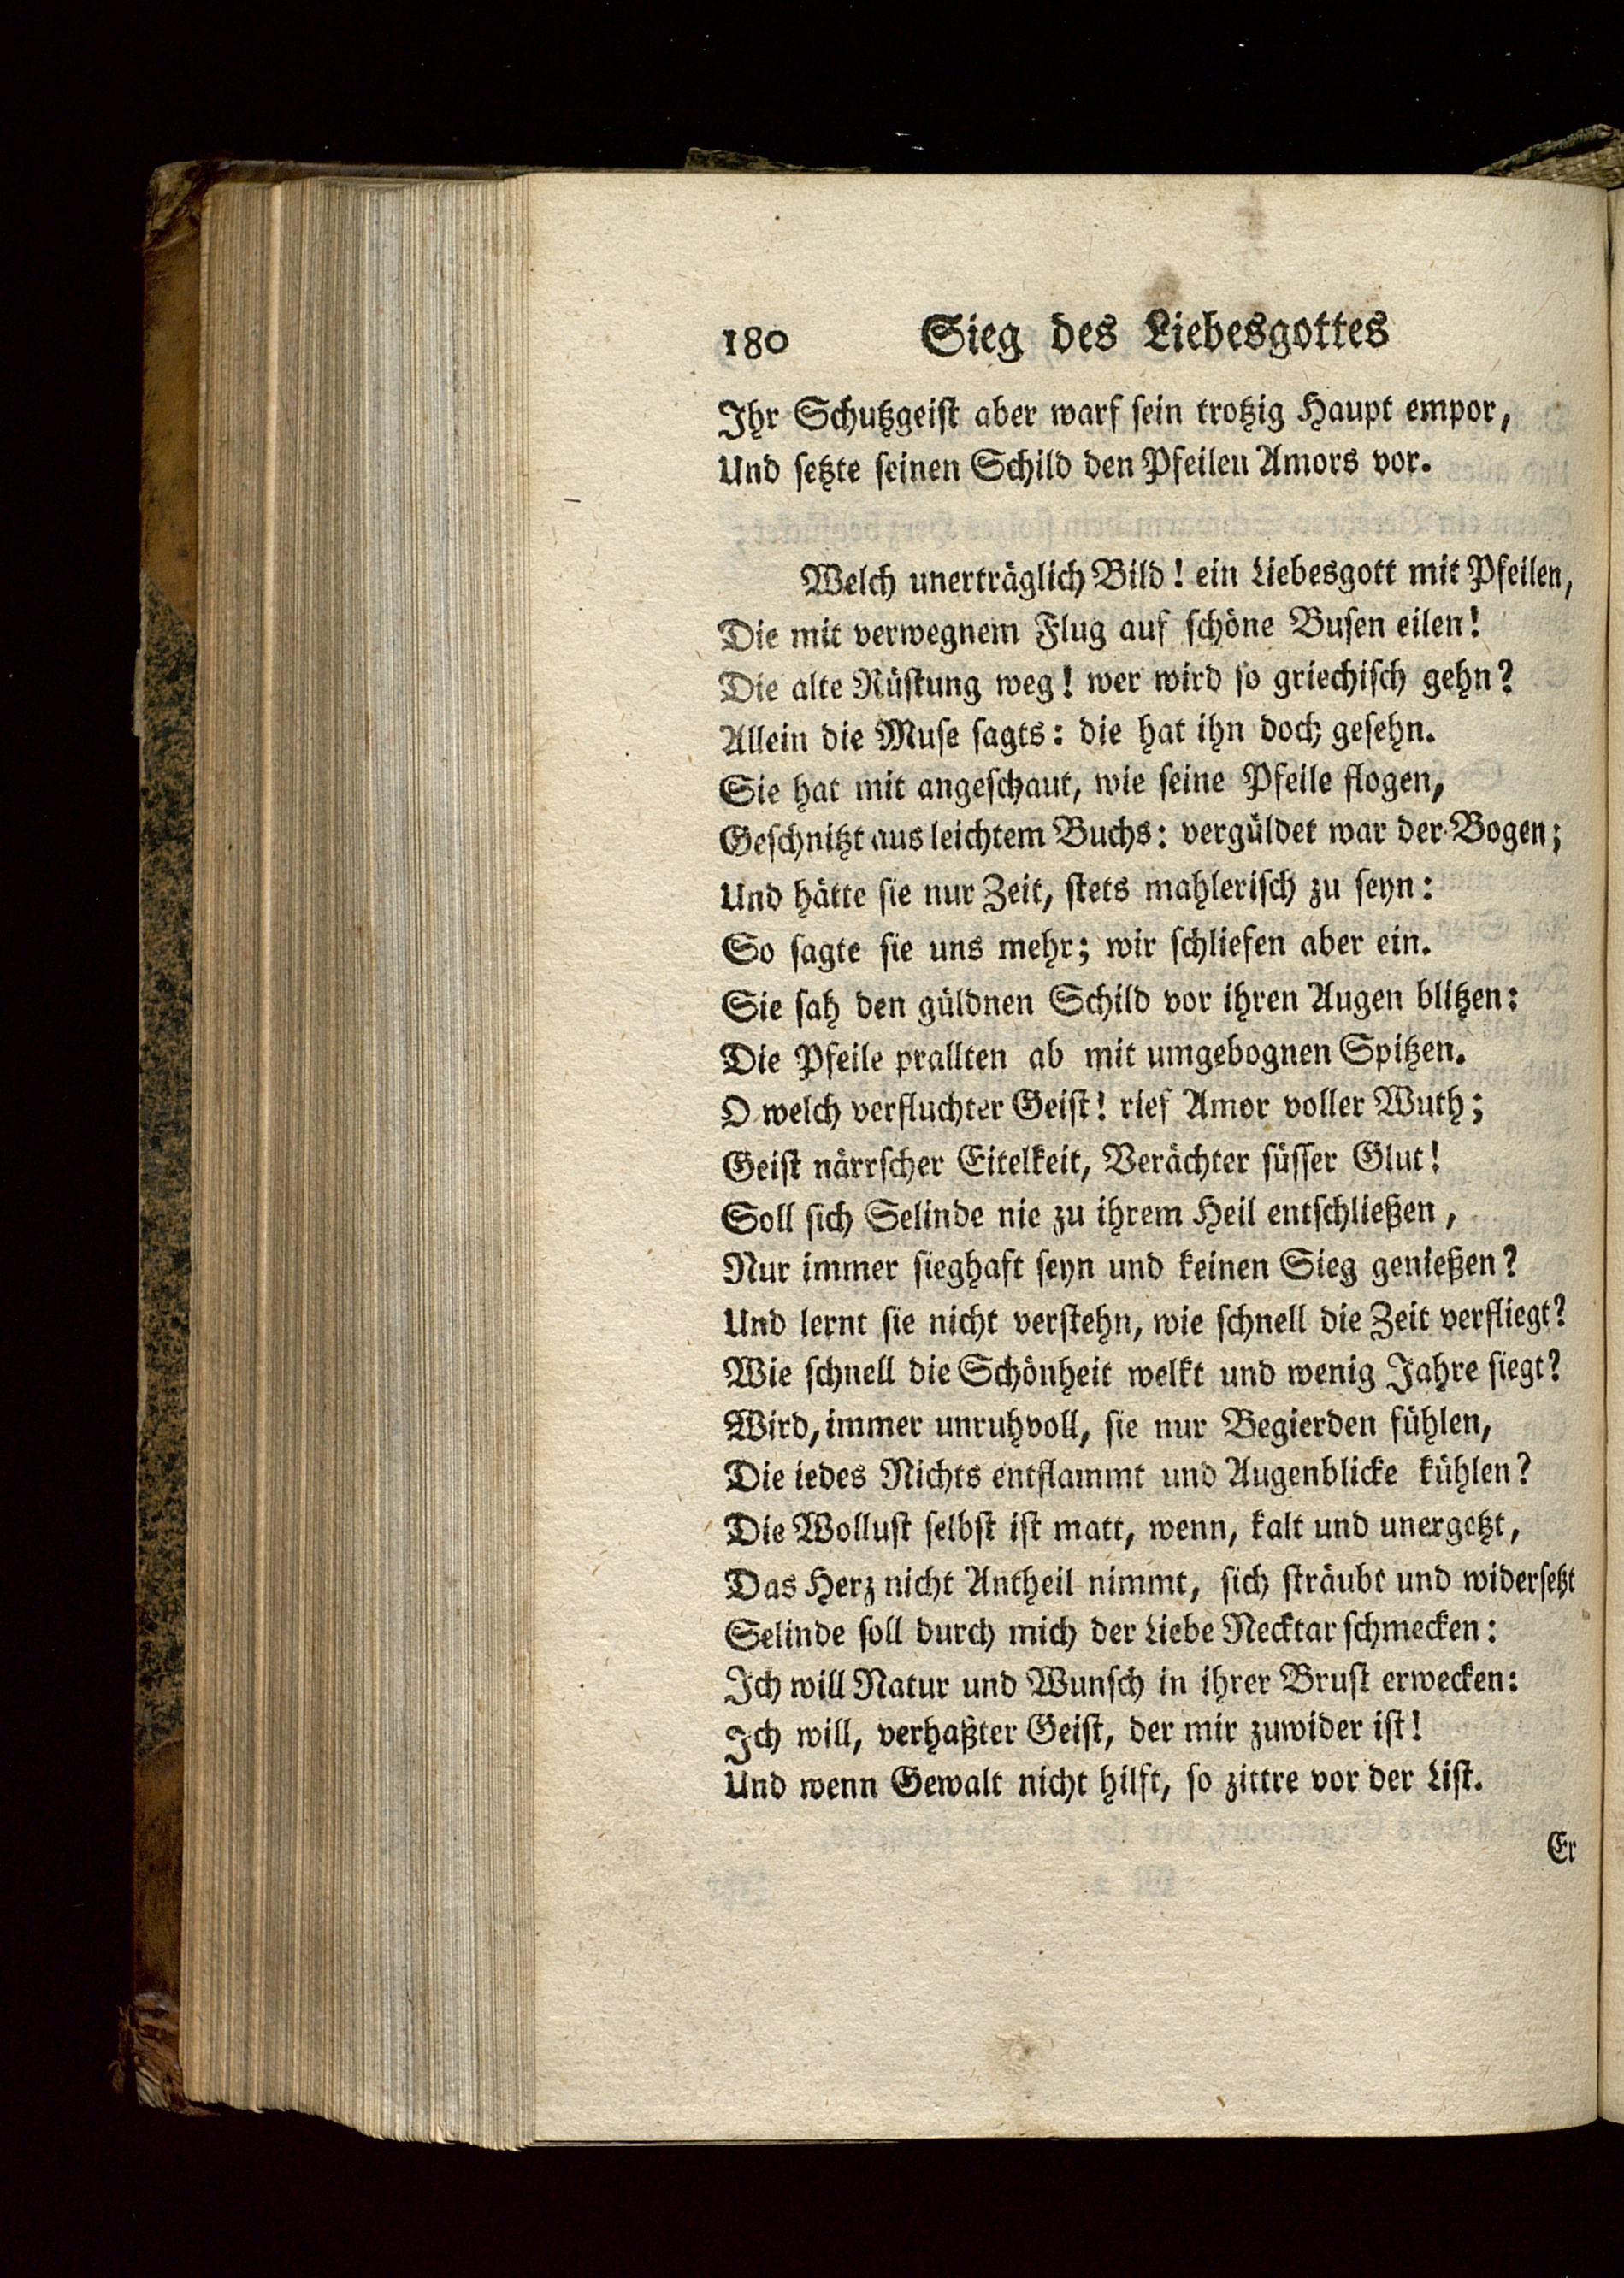 180 Sieg des Liebesgottes
Ihr Schutzgeist aber warf sein trotzig Haupt empor,
Und setzte seinen Schild den Pfeilen Amors vor.
Welch unerträglich Bild! ein Liebesgott mit Pfeilen,
Die mit verwegnem Flug auf schöne Busen eilen!
Die alte Rüstung weg! wer wird so griechisch gehn?
Allein die Muse sagts: die hat ihn doch gesehn.
Sie hat mit angeschaut, wie seine Pfeile flogen,
Geschnitzt aus leichtem Buchs: vergüldet war der Bogen;
Und hätte sie nur Zeit, stets mahlerisch zu seyn:
So sagte sie uns mehr; wir schliefen aber ein.
Sie sah den güldnen Schild vor ihren Augen blitzen:
Die Pfeile prallten ab mit umgebognen Spitzen.
O welch verfluchter Geist! rief Amor voller Wuth;
Geist närrscher Eitelkeit, Verächter süsser Glut!
Soll sich Selinde nie zu ihrem Heil entschließen,
Nur immer sieghaft seyn und keinen Sieg genießen?
Und lernt sie nicht verstehn, wie schnell die Zeit verfliegt?
Wie schnell die Schönheit welkt und wenig Jahre siegt?
Wird, immer unruhvoll, sie nur Begierden fühlen,
Die iedes Nichts entflammt und Augenblicke kühlen?
Die Wollust selbst ist matt, wenn, kalt und unergetzt,
Das Herz nicht Antheil nimmt, sich sträubt und widersetzt
Selinde soll durch mich der Liebe Necktar schmecken:
Ich will Natur und Wunsch in ihrer Brust erwecken:
Ich will, verhaßter Geist, der mir zuwider ist!
Und wenn Gewalt nicht hilft, so zittre vor der List.
Er